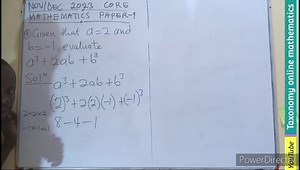 NOV/DEC 2023 CORE
MATHEMATICS PAPER-1
Given that a=2 and
b=-1, evaluate
a³+2ab+b³
Solⁿ
a³+2ab+b³
(2)³+2(2)(-1)+(-1)³
8-4-1
Taxonomy online mathematics
YouTube
PowerDirector